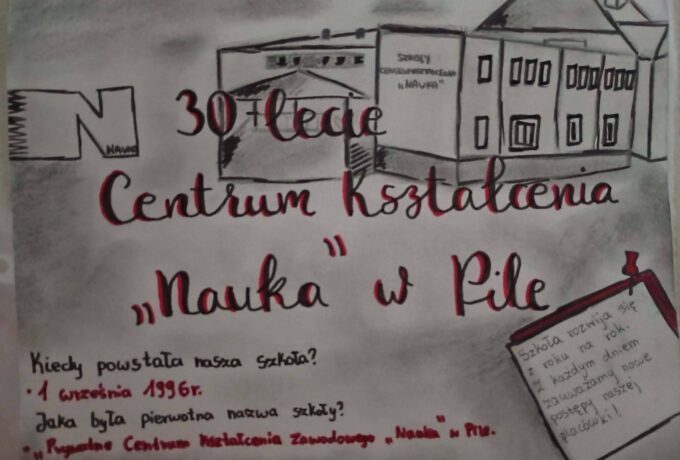 SZKOŁY
CENTRUM KSZTAŁCENIA
"NAUKA"
N
NAUKA
30-lecie
Centrum Kształcenia
„Nauka" w Pile
Kiedy powstała nasza szkoła?
• 1 września 1996r.
Jaka była pierwotna nazwa szkoły?
• „Prywatne Centrum Kształcenia Zawodowego „Nauka" w Pile.
Szkoła rozwija się
z roku na rok.
Z każdym dniem
zauważamy nowe
postępy naszej
placówki!